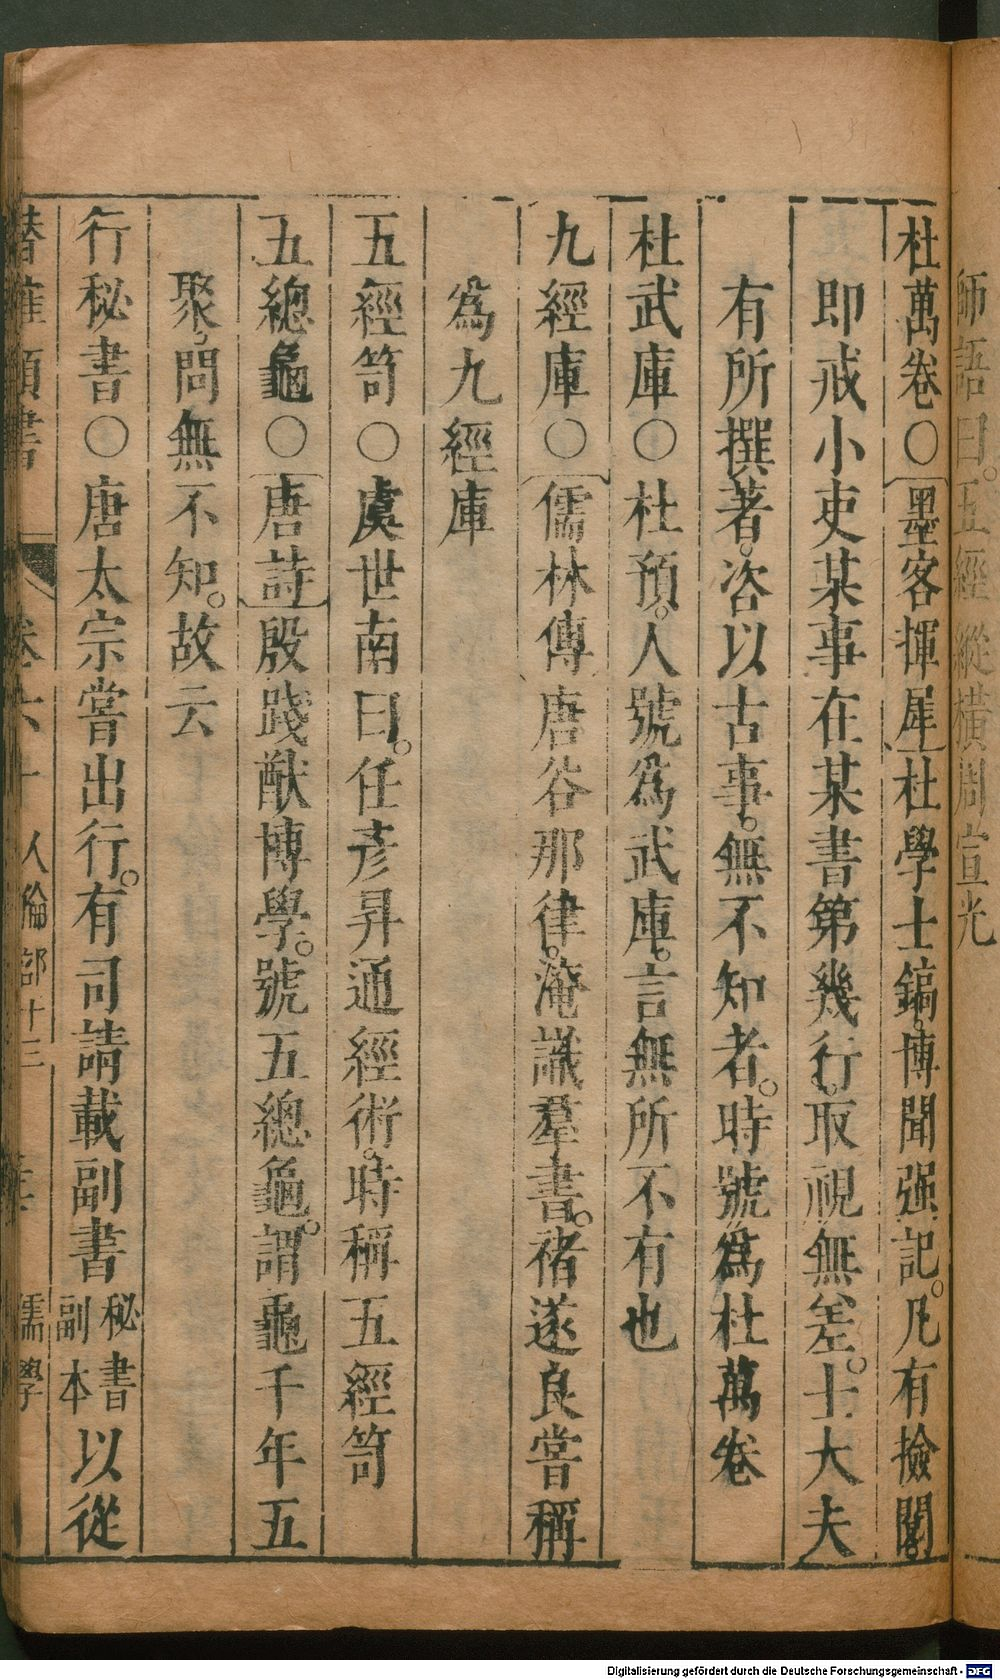 師語曰。五經縱橫周宣光
杜萬卷○墨客揮犀杜學士鎬。博聞强記。凡有撿閱
即戒小吏某事在某書第幾行。取視無差。士大夫
有所撰著。咨以古事。無不知者。時號爲杜萬卷
杜武庫○杜預。人號爲武庫。言無所不有也
九經庫○儒林傳唐谷那律。淹識羣書。褚遂良嘗稱
爲九經庫
五經笥○虞世南曰。任彥昇通經術。時稱五經笥
五總龜○唐詩殷踐猷博學。號五總龜。謂龜千年五
聚。問無不知。故云
行秘書○唐太宗嘗出行。有司請載副書秘書副本以從
類書 卷六十 人倫部十三 儒學
Digitalisierung gefördert durch die Deutsche Forschungsgemeinschaft - DFG